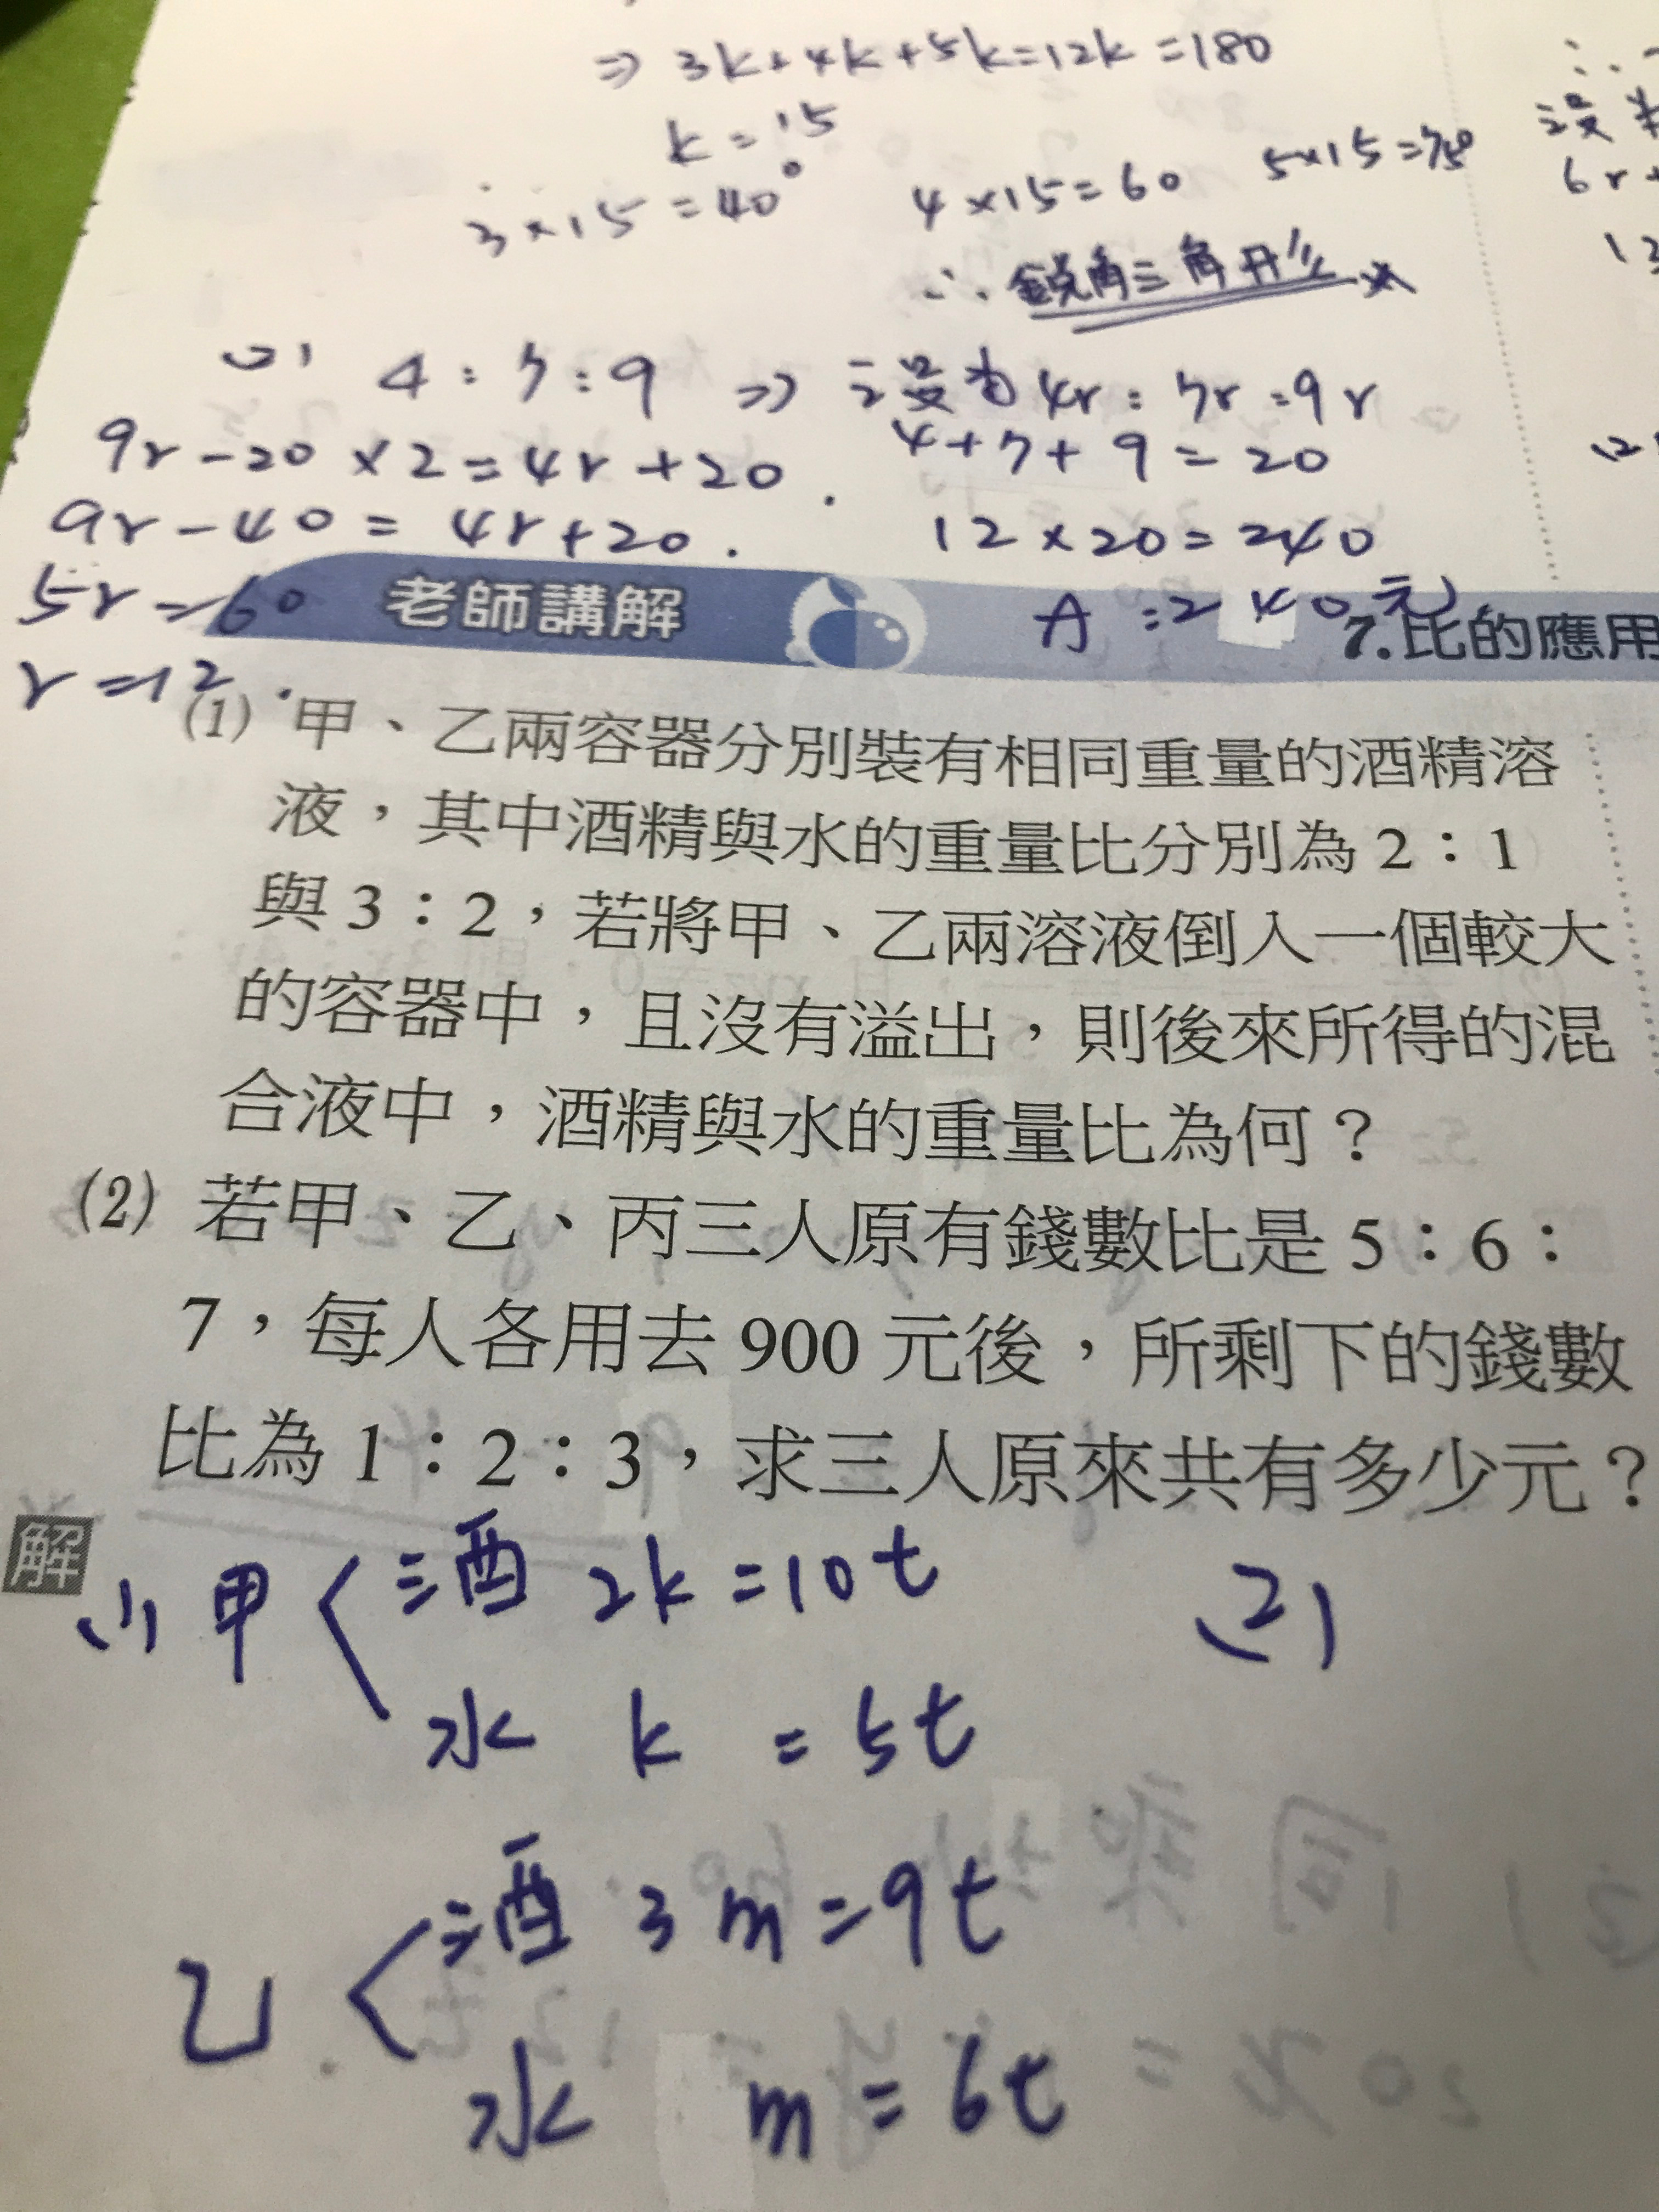 ⇒ 3k+4k+5k=12k=180
k=15
3×15=40° 4×15=60 5×15=75°
∴銳角三角形
(2) 4:7:9 ⇒ 設為4r:7r:9r
9r-20×2=4r+20. 4+7+9=20
9r-40=4r+20. 12×20=240
5r=60
A:240元
r=12.
老師講解 7.比的應用
(1) 甲、乙兩容器分別裝有相同重量的酒精溶
液，其中酒精與水的重量比分別為2：1
與3：2，若將甲、乙兩溶液倒入一個較大
的容器中，且沒有溢出，則後來所得的混
合液中，酒精與水的重量比為何？
(2) 若甲、乙、丙三人原有錢數比是5：6：
7，每人各用去900元後，所剩下的錢數
比為1：2：3，求三人原來共有多少元？
解
(1) 甲 酒 2k=10t
水 k =5t
乙 酒 3m=9t
水 m=6t
(2)
設
6r+